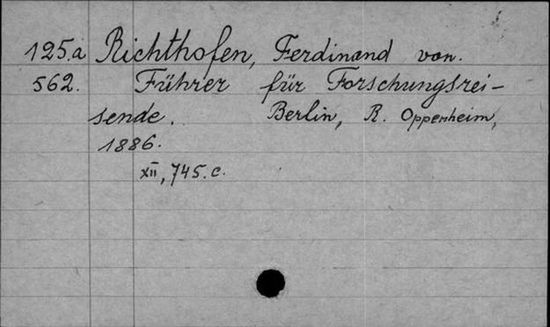 125.a Richthofen, Ferdinand von.
562. Führer für Forschungsrei-
sende. Berlin, R. Oppenheim,
1886.
XII, 745. c.